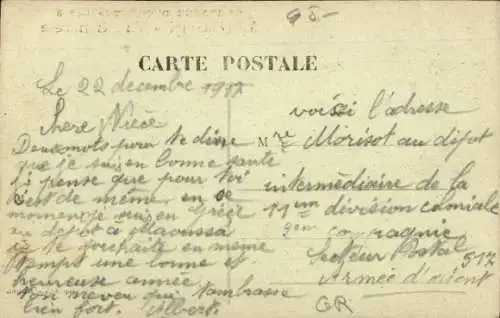 58-
CARTE POSTALE
Le 22 decembre 1917
Chere Nièce
Deux mots pour te dire
que je suis en bonne sante
je pense que pour toi
est de même. en se
moment je suis en Grèce
au depot a
je te souhaite en meme
temps une bonne et
heureuse année
ton neveu qui t'embrasse
bien fort. Albert
voisi l'adresse
Mr Morisot au dépot
intermédiaire de la
11em division coloniale
2em compagnie
Secteur Postal
517
Armée d'orient
GR